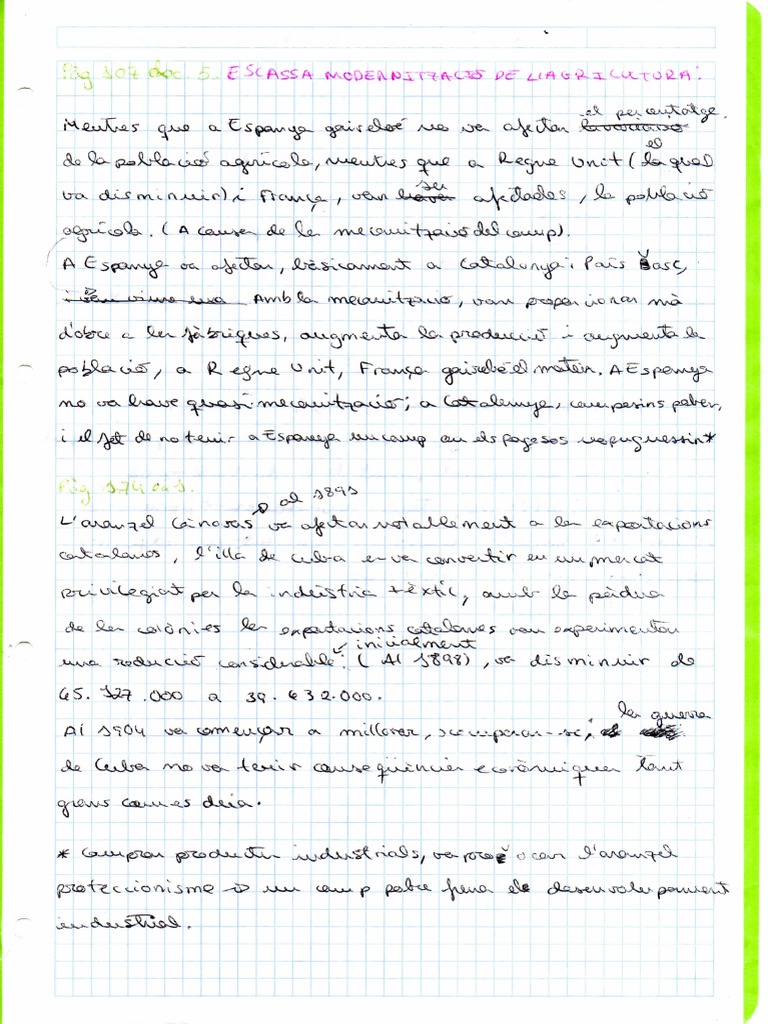 Pàg 107 doc 5. ESCASSA MODERNITZACIÓ DE L'AGRICULTURA:
Mentres que a Espanya gaisebé no va afectar el percentatge
de la població agrícola, mentres que a Regne Unit (el qual
va disminuir) i França, van ser afectades, la població
agrícola. (A causa de la mecanització del camp).
A Espanya va afectar, bàsicament a Catalunya i País Basc,
Amb la mecanització, van proporcionar mà
d'obre a les fàbriques, augmenta la producció i augmenta la
població, a Regne Unit, França gaisebé el mateix. A Espanya
no va haver quasi mecanització; a Catalunya, camperins pobres,
i el fet de no tenir a Espanya un camp on els pagesos no puguessin*
Pàg 174 ex 1.
L'aranzel Cànovas al 1891 va afectar notablement a les exportacions
catalanes, l'illa de Cuba es va convertir en un mercat
privilegiat per la indústria tèxtil, amb la pèrdua
de les colònies les exportacions catalanes van experimentar
una reducció considerable inicialment. (Al 1898), va disminuir de
65.127.000 a 39.632.000.
Al 1904 va començar a millorar, recuperar-se, la guerra
de Cuba no va tenir conseqüències econòmiques tant
grans com es deia.
* comprar productes industrials, va provocar l'aranzel
proteccionisme un camp pobre frena el desenvolupament
industrial.